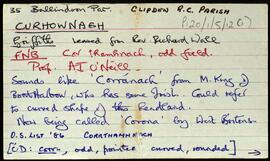 35 Ballindoon Par. CLIFDEN R.C. PARISH
CURHOWNAGH P.20/15/1201
Griffith Learned from Rev Richard Wall
FNB Cor odd, field.
Prof. A J O'Neill.
Sounds like 'Corranach' from M. King of
who has some Irish. Could refer
to curved shape of the headland.
Now being called 'Corona' by West Britons
O.S. LIST '86
[OD: corr-, odd, pointed, curved, rounded]